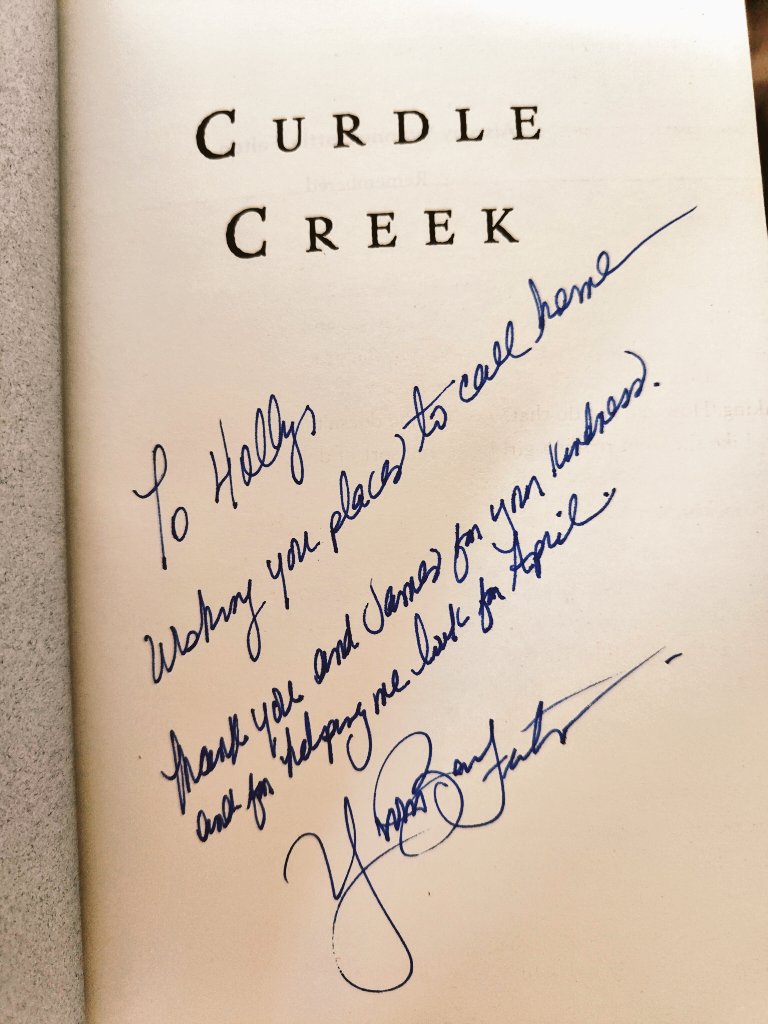 CURDLE
CREEK
To Hollys
Wishing you places to call home
Thank you and James for your kindness.
and for helping me look for April.
Remembered